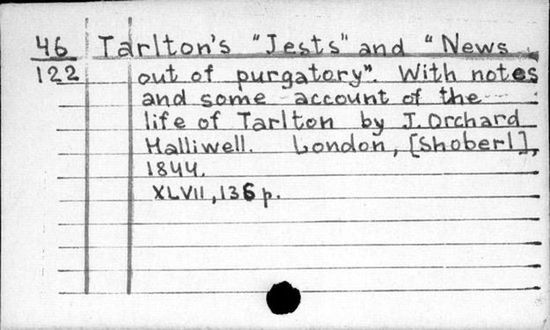 46 Tarlton's "Jests" and "News
122 out of purgatory". With notes
and some account of the
life of Tarlton by J. Orchard
Halliwell. London, [Shoberl],
1844.
XLVII, 136 p.